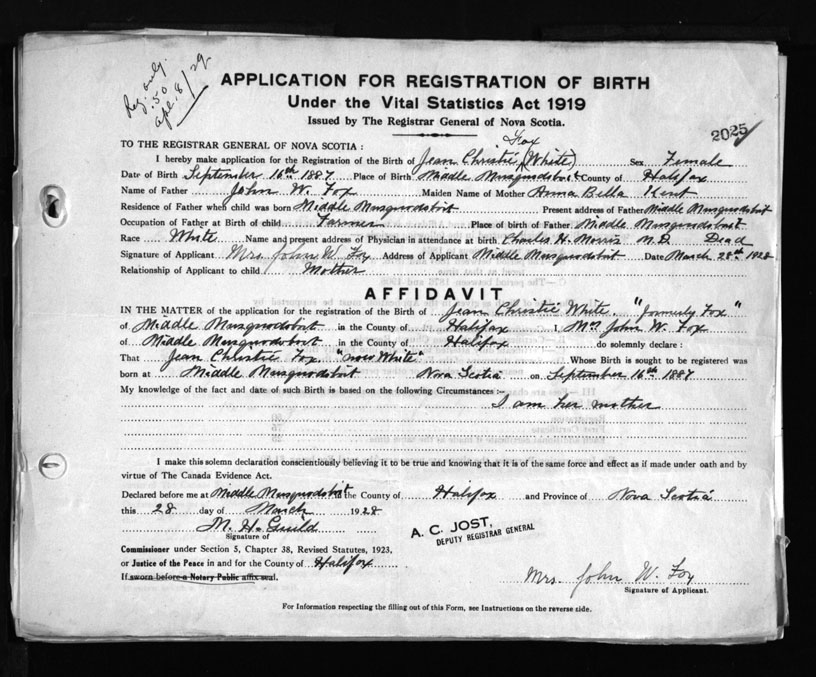 Reg. only.
.50
Apl. 8/29
APPLICATION FOR REGISTRATION OF BIRTH
Under the Vital Statistics Act 1919
Issued by The Registrar General of Nova Scotia.
2025
TO THE REGISTRAR GENERAL OF NOVA SCOTIA:
Fox
I hereby make application for the Registration of the Birth of Jean Christie (White) Sex Female
Date of Birth September 16th 1887 Place of Birth Middle Musquodoboit County of Halifax
Name of Father John W. Fox Maiden Name of Mother Anna Bella Kent
Residence of Father when child was born Middle Musquodoboit Present address of Father Middle Musquodoboit
Occupation of Father at Birth of child Farmer Place of birth of Father Middle Musquodoboit
Race White Name and present address of Physician in attendance at birth Charles H. Morris M.D. Dead
Signature of Applicant Mrs. John W. Fox Address of Applicant Middle Musquodoboit Date March 28th 1928
Relationship of Applicant to child Mother
AFFIDAVIT
IN THE MATTER of the application for the registration of the Birth of Jean Christie White. "formerly Fox"
of Middle Musquodoboit in the County of Halifax I, Mrs John W. Fox
of Middle Musquodoboit in the County of Halifax do solemnly declare:
That Jean Christie Fox. "now White" Whose Birth is sought to be registered was
born at Middle Musquodoboit Nova Scotia on September 16th 1887
My knowledge of the fact and date of such Birth is based on the following Circumstances :-
I am her mother
I make this solemn declaration conscientiously believing it to be true and knowing that it is of the same force and effect as if made under oath and by
virtue of The Canada Evidence Act.
Declared before me at Middle Musquodoboit the County of Halifax and Province of Nova Scotia
this 28 day of March 1928
M. H. Guild
Signature of
A. C. JOST,
DEPUTY REGISTRAR GENERAL
Commissioner under Section 5, Chapter 38, Revised Statutes, 1923,
or Justice of the Peace in and for the County of Halifax
If sworn before a Notary Public affix seal.
Mrs. John W. Fox
Signature of Applicant.
For Information respecting the filling out of this Form, see Instructions on the reverse side.